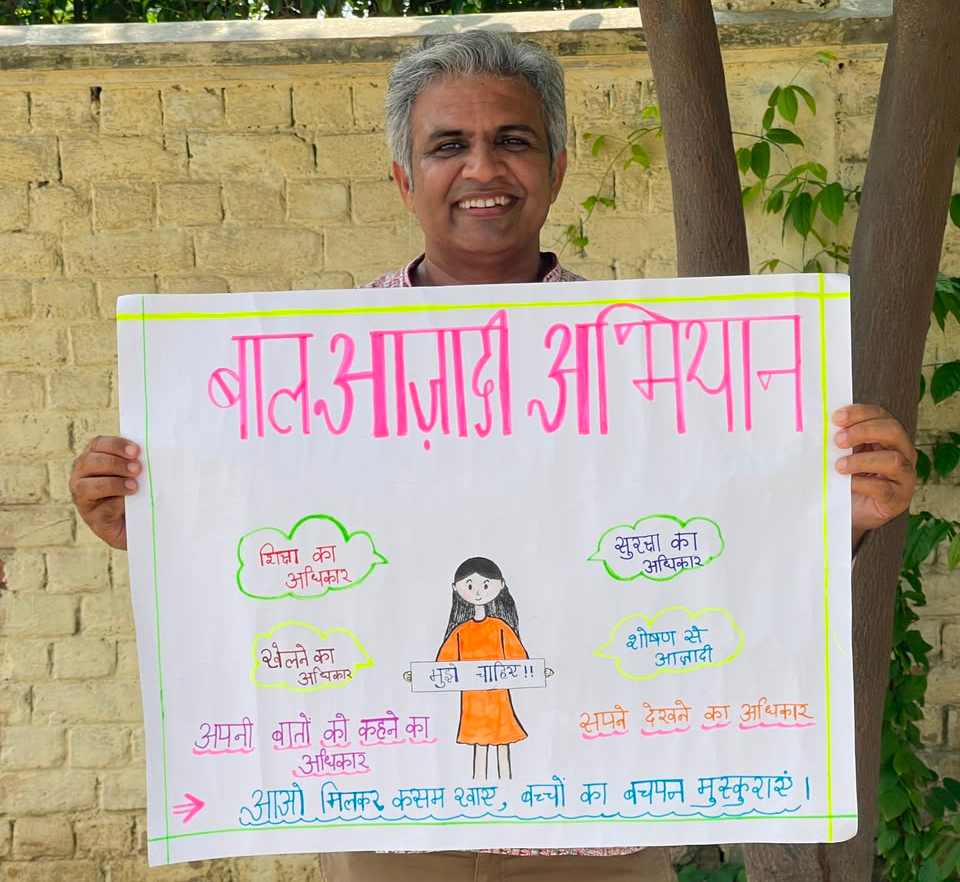 बाल आज़ादी अभियान
शिक्षा का
अधिकार
सुरक्षा का
अधिकार
खेलने का
अधिकार
शोषण से
आज़ादी
मुझे चाहिए!!
अपनी बातों को कहने का
अधिकार
सपने देखने का अधिकार
आओ मिलकर कसम खाए, बच्चों का बचपन मुस्कुराएं।